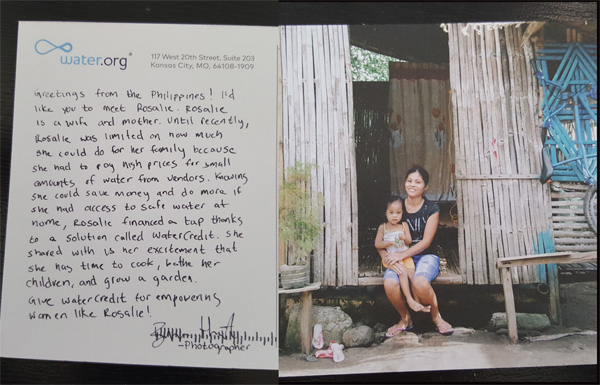 water.org®
117 West 20th Street, Suite 203
Kansas City, MO, 64108-1909
Greetings from the Philippines! I'd
like you to meet Rosalie. Rosalie
is a wife and mother. Until recently,
Rosalie was limited on how much
she could do for her family because
she had to pay high prices for small
amounts of water from vendors. Knowing
she could save money and do more if
she had access to safe water at
home, Rosalie financed a tap thanks
to a solution called WaterCredit. She
shared with is her excitement that
she has time to cook, bathe her
children, and grow a garden.
Give WaterCredit for empowering
women like Rosalie!
-Photographer